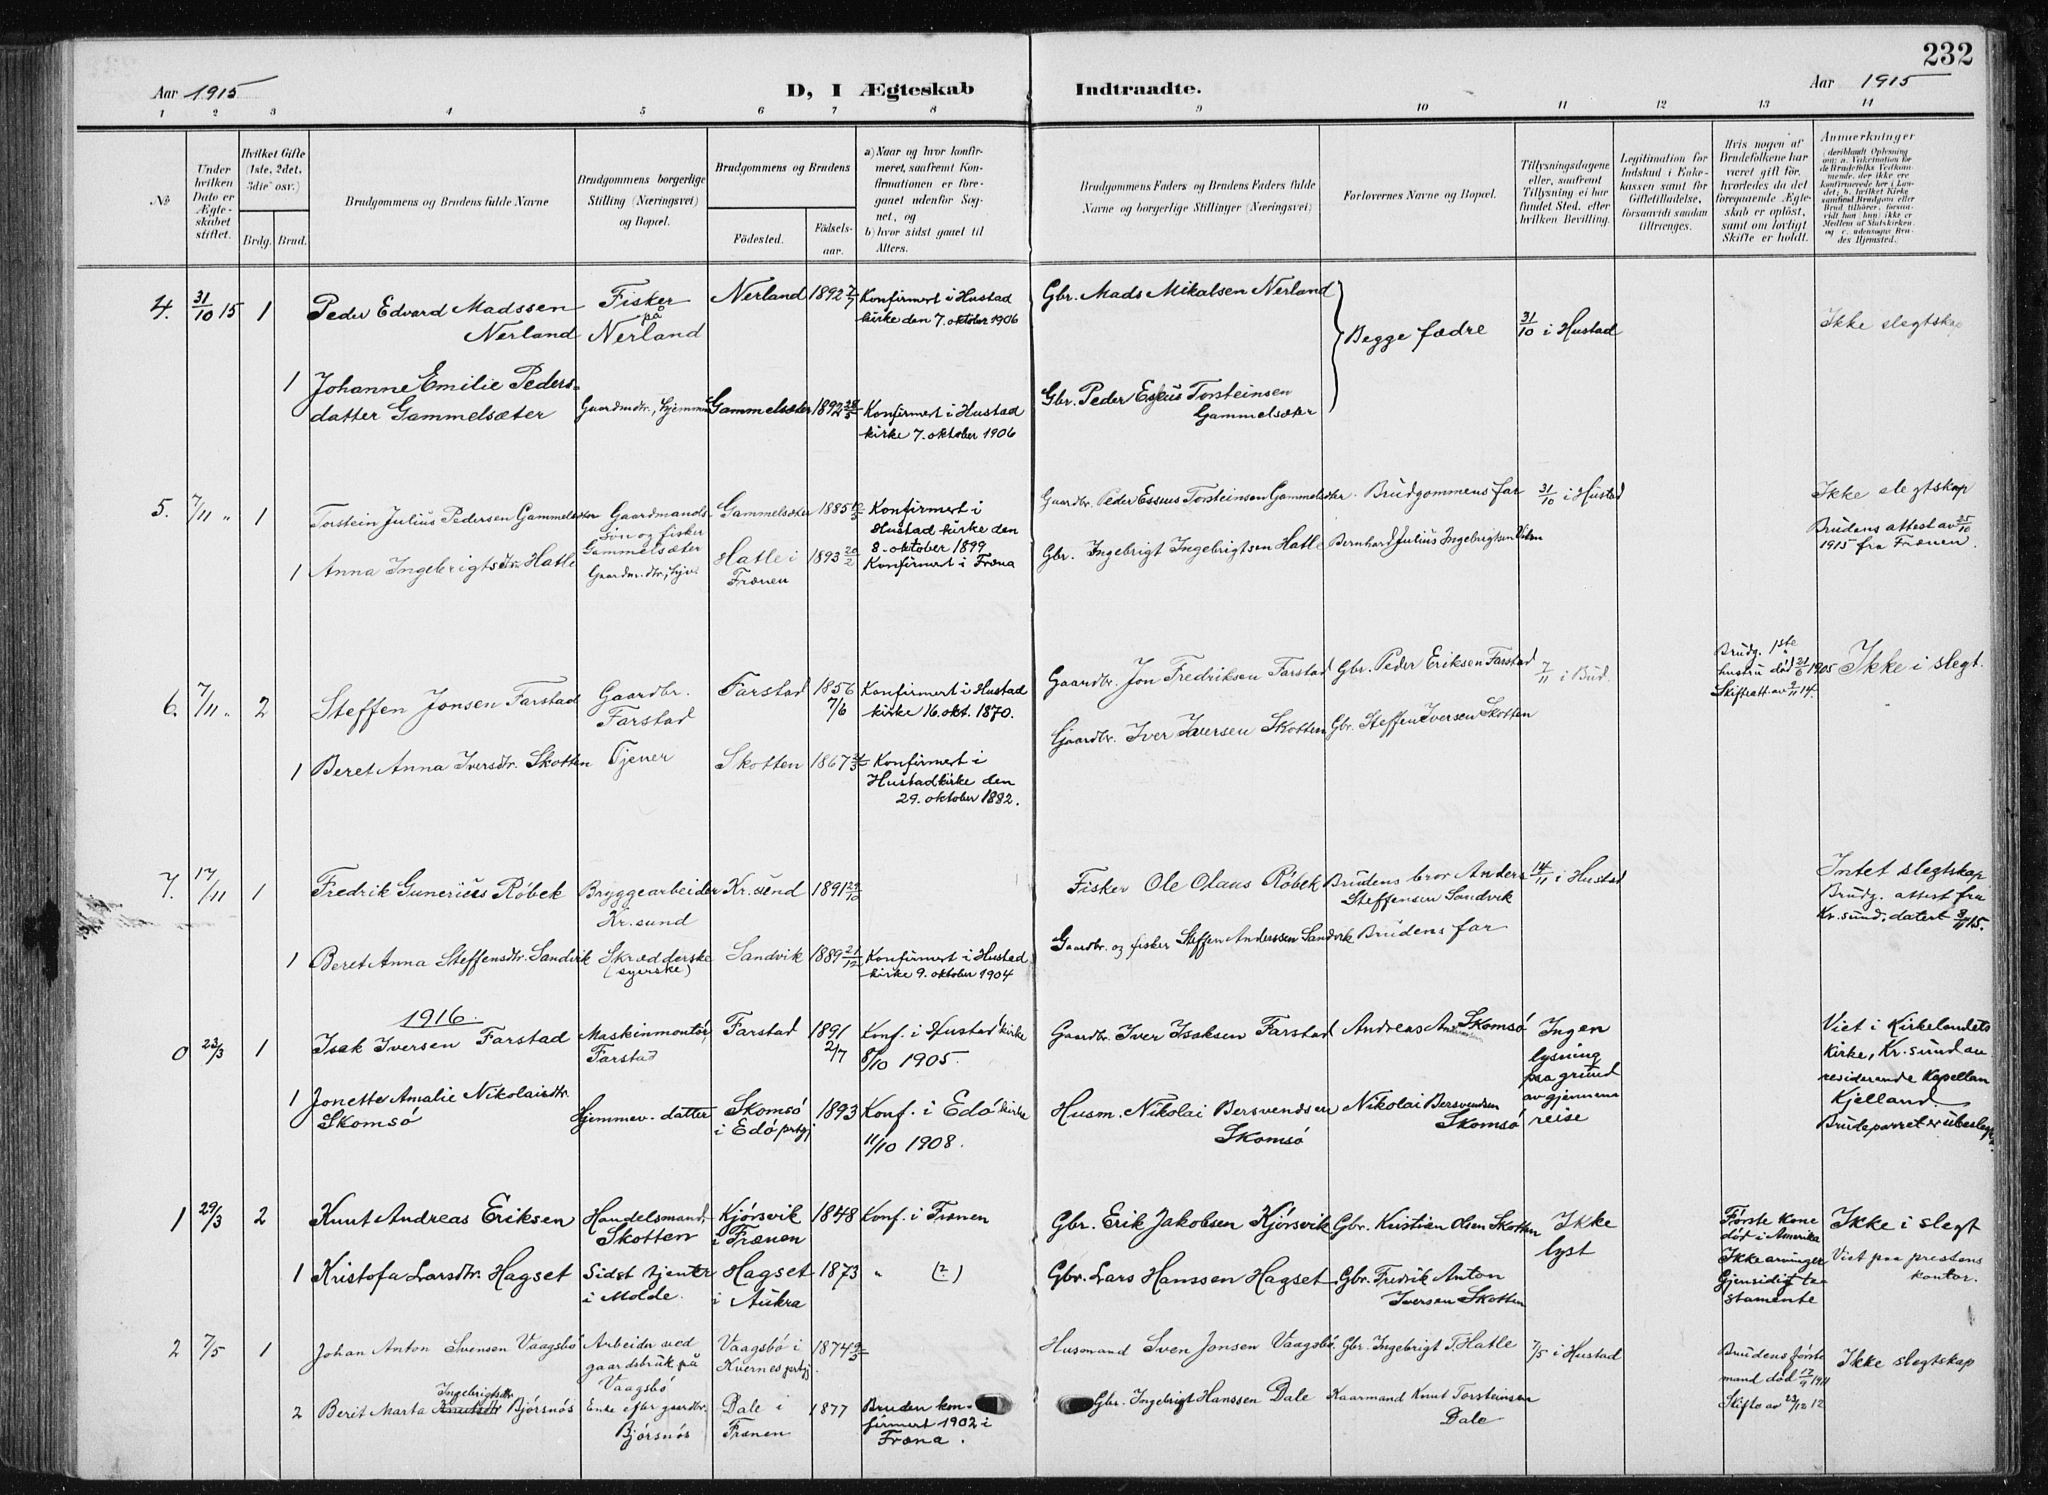 232
Aar 1915
D, I Ægteskab
Indtraadte.
Aar 1915
1 2 3 4 5 6 7 8 9 10 11 12 13 14
No
Under
hvilken
Dato er
Ægte-
skabet
stiftet.
Hvilket Gifte
(1ste, 2det,
3die osv.)
Brdg.
Brud.
Brudgommens og Brudens fulde Navne
Brudgommens borgerlige
Stilling (Næringsvei)
og Bopæl.
Brudgommens og Brudens
Fødested.
Fødsels-
aar.
a) Naar og hvor konfir-
meret, saafremt Kon-
firmationen er fore-
gaaet udenfor Sog-
net, og
b) hvor sidst gaaet til
Alters.
Brudgommens Faders og Brudens Faders fulde
Navne og borgerlige Stillinger (Næringsvei)
Forlovernes Navne og Bopæl.
Tillysningsdagene
eller, saafremt
Tillysning ei har
fundet Sted, efter
hvilken Bevilling.
Legitimation for
Indskud i Enke-
kassen samt for
Giftetilladelse,
forsaavidt saadan
tiltrænges.
Hvis nogen af
Brudefolkene har
været gift før,
hvorledes da det
foregaaende Ægte-
skab er opløst,
samt om lovligt
Skifte er holdt.
Anmerkninger
(deriblandt Oplysning
om: a. Vakcination for
de Brudefolks Vedkom-
mende, der ikke ere
konfirmerede her i Lan-
det; b. hvilket Kirke
samfund Brudgom eller
Brud tilhører, forsaa-
vidt han (hun) ikke er
Medlem af Statskirken,
og c. udensogns Bru-
des Hjemsted.
4. 31/10 15 1
Peder Edvard Madssen
Nerland
Fisker
på
Nerland
Nerland 1892 7/7
Konfirmert i Hustad
kirke den 7. oktober 1906
Gbr. Mads Mikalsen Nerland
Begge fædre
31/10 i Hustad
Ikke slegtskap
1 Johanne Emilie Peders-
datter Gammelsæter
Gaardmdtr., hjemme
Gammelsæter 1892 28/5
Konfirmert i Hustad
kirke 7. oktober 1906
Gbr. Peder Esæus Torsteinsen
Gammelsæter
5. 7/11 " 1
Torstein Julius Pedersen Gammelsæter
Gaardmands
søn og fisker
Gammelsæter
Gammelsæter 1885 12/3
Konfirmert i
Hustad kirke den
8. oktober 1899
Gaardbr. Peder Essæus Torsteinsen Gammelsæter. Brudgommens far
31/10 i Hustad
Ikke slegtskap
Brudens attest av 25/10
1915 fra Frænen.
1 Anna Ingebrigtsdtr. Hatle
Gaardm.dtr., hjve
Hatle i
Frænen
1893 20/2
Konfirmert i Fræna
Gbr. Ingebrigt Ingebrigtsen Hatle
Bernhard Julius Ingebrigtsen
6. 7/11 " 2
Steffen Jonsen Farstad
Gaardbr.
Farstad
Farstad 1856
7/6
Konfirmert i Hustad
kirke 16. okt. 1870.
Gaardbr. Jon Fredriksen Farstad
Gbr. Peder Eriksen Farstad
7/11 i Bud.
Brudg. 1ste
hustru død 21/6 1905
Skifteatt. av 9/11 14.
Ikke i slegt.
1 Beret Anna Iversdtr. Skotten
Tjener
Skotten 1867
Konfirmert i
Hustadkirke den
29. oktober 1882.
Gaardbr. Iver Iversen Skotten
Gbr. Steffen Iversen Skotten
7. 17/11 1
Fredrik Gunerius Røbek
Bryggearbeider
Kr.sund
Kr.sund 1891 29/10
Fisker Ole Olaus Røbek
Brudens bror Anders
Steffensen Sandvik
14/11 i Hustad
Intet slegtskap
Brudg. attest fra
Kr.sund, datert 8/11 15.
1 Beret Anna Steffensdtr. Sandvik
Skrædderske
(syerske)
Sandvik 1889 21/12
Konfirmert i Hustad
kirke 9. oktober 1904
Gaardbr. og fisker Steffen Anderssen Sandvik
Brudens far
1916.
0 23/3 1
Isak Iversen Farstad
Maskinmontør,
Farstad
Farstad 1891
2/7
Konf. i Hustad kirke
8/10 1905.
Gaardbr. Iver Isaksen Farstad
Andreas Skomsø
Ingen
lysning
paa grund
av gjennem-
reise
Viet i Kirkelandets
kirke, Kr.sund av
residerende kapellan
Kjelland.
Brudeparret er ubeslegt.
1 Jonette Amalie Nikolaisdtr.
Skomsø
Hjemmev. datter
Skomsø
i Edø prtgj
1893
Konf. i Edø kirke
11/10 1908.
Husm. Nikolai Bersvendsen
Skomsø
Nikolai Bersvendsen
Skomsø
1 29/3 2
Knut Andreas Eriksen
Handelsmand,
Skotten
Kjørsvik
i Frænen
1848
Konf. i Frænen
Gbr. Erik Jakobsen Kjørsvik
Gbr. Kristian Olsen Skotten
Ikke
lyst
Første kone
død i Amerika
Ikke arvinger
Gjensidig te-
stamente
Ikke i slegt
Viet paa prestens
kontor.
1 Kristofa Larsdtr. Hagset
Sidst tjente
i Molde.
Hagset
i Aukra
1873
" (?)
Gbr. Lars Hanssen Hagset
Gbr. Fredrik Anton
Iversen Skotten
2 7/5 1
Johan Anton Svensen Vaagsbø
Arbeider ved
gaardsbruk på
Vaagsbø
Vaagsbø i
Kvernes prtgj
1874 9/3
Husmand Sven Jonsen Vaagsbø
Gbr. Ingebrigt T. Hatle
7/5 i Hustad
Brudens første
mand død 17/9 1911
Skifte av 23/12 12
Ikke slegtskap
2 Berit Marta Knutsdtr Ingebrigtsdtr Bjørsnøs
Enke efter gaardbr.
Bjørsnøs
Dale i
Frænen
1877
Bruden kon-
firmert 1902 i
Fræna.
Gbr. Ingebrigt Hanssen Dale
Kaarmand Knut Torsteinsen
Dale